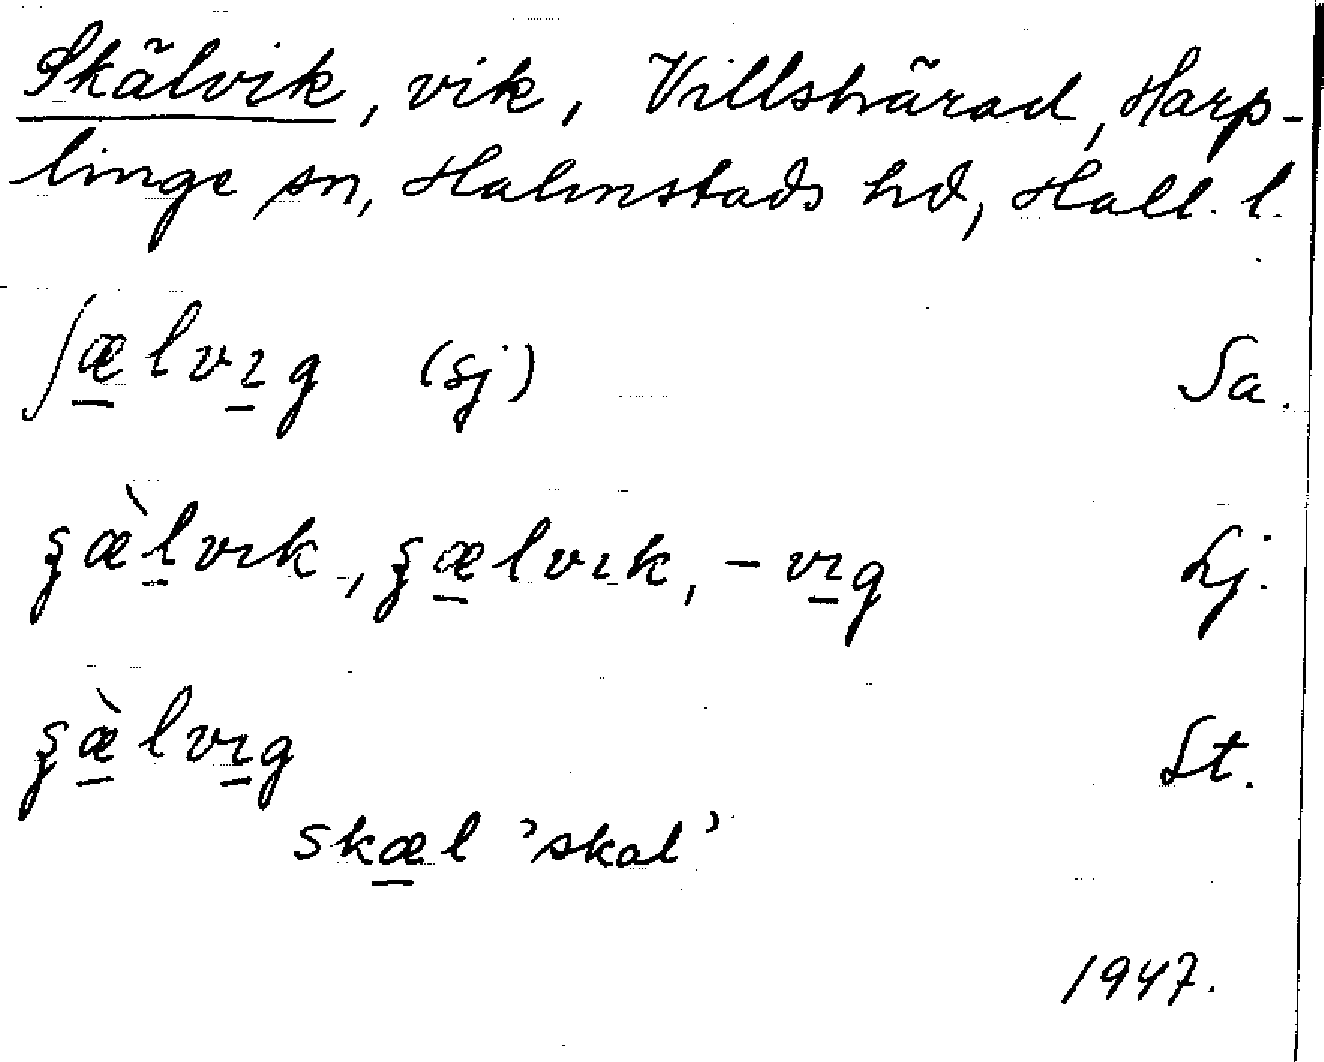 Skälvik, vik, Villshärad, Harp-
linge sn, Halmstads hd, Hall. l.
ʃæ̲lvɪ̲g (sj) Sa.
ʂæ̀l̲vɪk, ʂæ̲lvɪk, -vɪ̲g Lj.
ʂæ̲̀lvɪ̲g St.
skæ̲l 'skal'
1947.